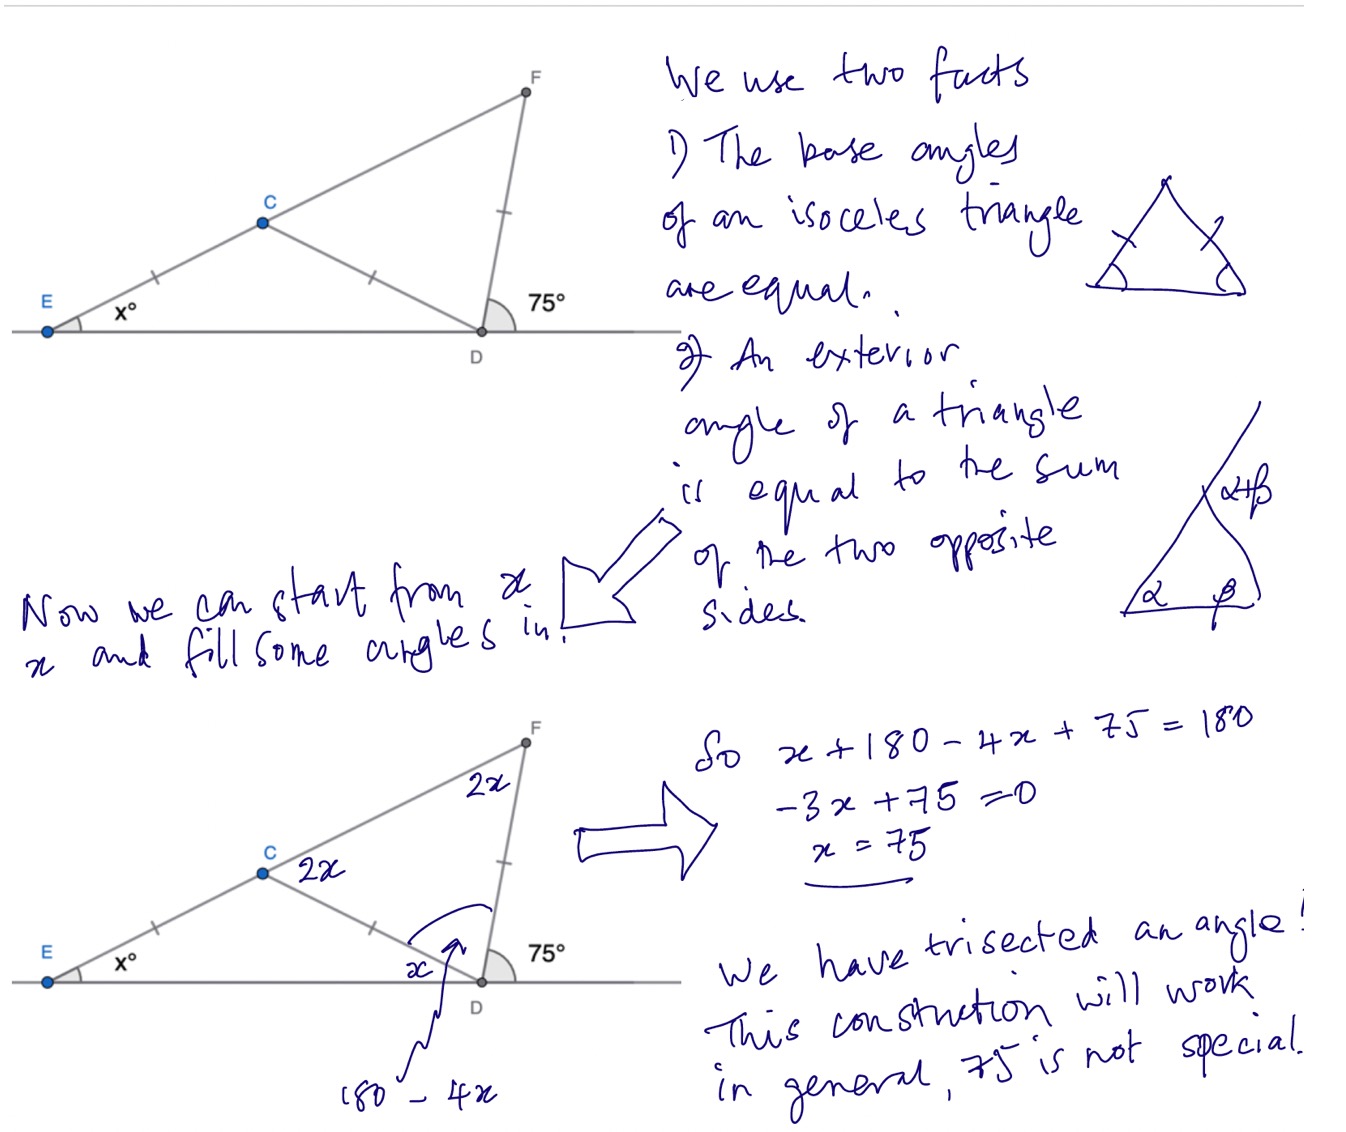 F
C
E
x°
75°
D
We use two facts
1) The base angles
of an isoceles triangle
are equal.
2) An exterior
angle of a triangle
is equal to the sum
of the two opposite
sides.
α+β
α β
Now we can start from x
x and fill some angles in.
F
2x
C
2x
E
x°
x
75°
D
180 - 4x
So x + 180 - 4x + 75 = 180
-3x + 75 = 0
x = 75
We have trisected an angle!
This construction will work
in general, 75 is not special.